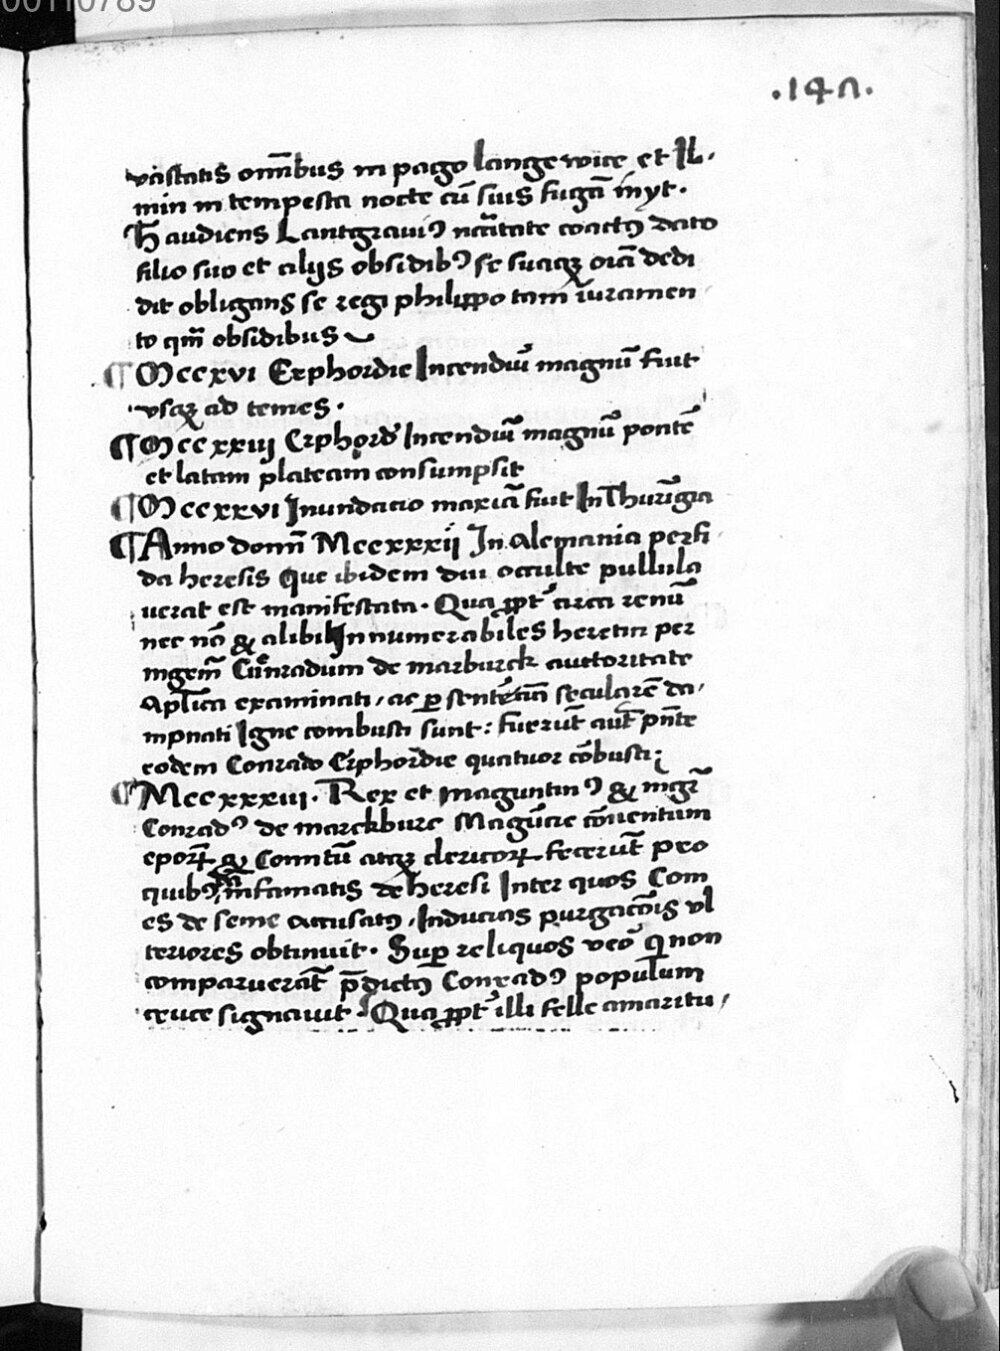 00110789
.147.
vastatis om̄ibus in pago lange wice et Il-
min in tempesta nocte cū suis fugā inyt.
H̄ audiens Lantgraui⁹ nc̄itate coactꝰ dato
filio suo et alijs obsidib⁹ se suaqꝫ oīa dedi
dit obligans se regi philippo tam iuramen
to qm̄ obsidibus
¶ Mccxvi Erphordie Incendiū magnū fuit
vsqꝫ ad temes.
¶ Mccxxiij Erphord̕ Incendiū magnū pontē
et latam plateam consumpsit
¶ Mccxxvi Inundacio maxīa fuit In Thuringia
¶ Anno domī Mccxxxij In Alemania perfi
da heresis que ibidem diu occulte pullula
uerat est manifestata. Qua ꝓpt̕ circa renū
nec nō & alibi Innumerabiles heretici per
mgr̄m Cunradum de marburck auctoritate
apl̄ica examinati, ac ꝑ sentēciā secularē da,
mpnati Igne combusti sunt: fuerūt aut̄ pn̄te
eodem Conrado Erphordie quatuor cōbusti;
¶ Mccxxxiii. Rex et maguntin⁹ & mgr̄
Conrad⁹ de marckburc Magūcie cōuentum
epoꝝ & Comitū atqꝫ clericoꝝ fecerūt pro
quibꝰ infamatis de heresi Inter quos Com
es de seine accusatꝰ, Inducias purgacōis vl
teriores obtinuit. Suꝑ reliquos vᵒo qi non
comparuerāt p̄dictꝰ Conrad⁹ populum
cruce signauit. Qua ꝓpt̕ illi felle amaritu,